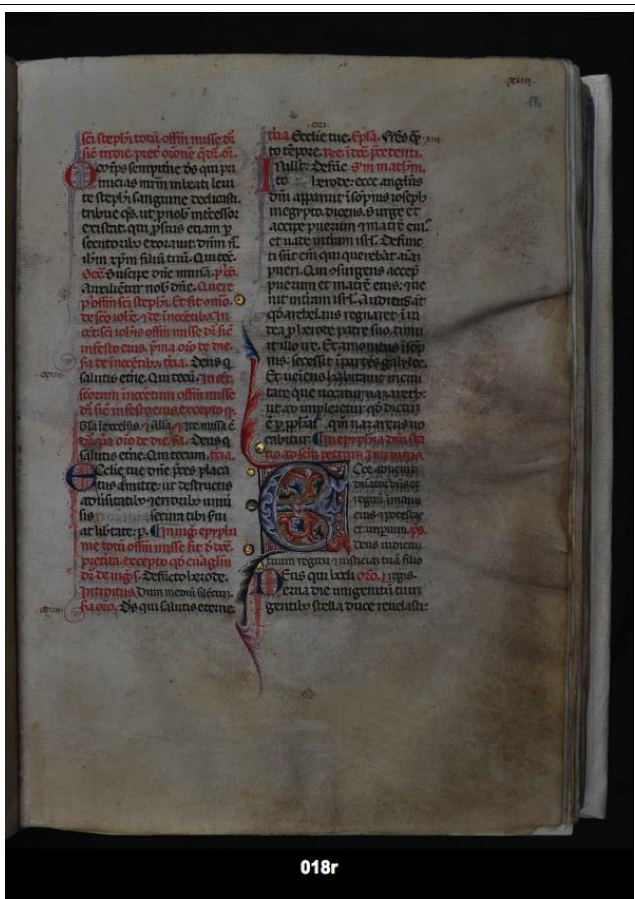 xiiii.
18
sci stephi totu offm misse dr
sic in die. pret orone q̄ dr. or.
Omps sempitne ds qui pri
micias mrm in beati leui
te stephi sanguine dedicasti.
tribue qs. ut p nob intcessor
existat. qui p suis etiam p
secutoribs exorauit. dnm nr.
ihm xpm filiu tuu. Qui tec.
Secr. Suscipe dne munia. p. co.
Auxilient nob dne. Quere
p offm sci stephi. Et fit omo.
de sco iohe. 7 de innocentib. In
oct. sci iohis offm misse dr sic
in festo eius. pma oro de die.
scda de innocetib. tcia. Deus q
salutis etne. Qui tecu. In oct.
scorum innocetum offm misse
dr sic in festo eius. excepto q.
Gla i excelsis. 7 Alla. 7 ite missa e
dr. pa oro de die. sa. Deus q
salutis etne. Qui tecum. tcia.
Ecclie tue dne pces placa
tus admitte. ut destructis
aduersitatib 7 erroribs uniuersis
secura tibi serui
at libtate. p. In uig. epyph
nie totu offm misse fit d dca
pterita. excepto qd euaglm
dr de uig. s. Defucto herode.
Introitus. Dum mediu silentiu.
sa oro. Ds qui salutis eterne.
tcia. Ecclie tue. Epla. Frs q̄
to tepore. Req. in dca pcedenti.
In illo t. Defuc S. m mathm.
to herode: ecce anglus
dni apparuit i sopnis ioseph
in egypto. dicens. Surge et
accipe puerum 7 matre eius.
et uade in tram isrl. Defunc
ti sut em qui querebat aiam
pueri. Qui cosurgens accep
puerum et matre eius: 7 ue
nit in tram isrl. Audiens at
qd archelaus regnaret i iu
dea p herode patre suo, timu
it illo ire. Et amonitus i sop
nis: secessit i partes galylee.
Et ueniens habitauit in ciui
tate que uocatur nazareth:
ut ad impleretur qd dictu
e p pphas. qm nazareus uo
cabitur. In epyphia dni sta
tio ad scm petrum. Introitus.
Ecce aduenit
dnator dns: et
regnu in manu
eius 7 potestas
et imperium. ps.
Deus iudiciu
tuum regi da: 7 iusticia tua filio
Deus qui hodi oro. regis.
erna die unigenitu tuu
gentibs stella duce reuelasti:
018r